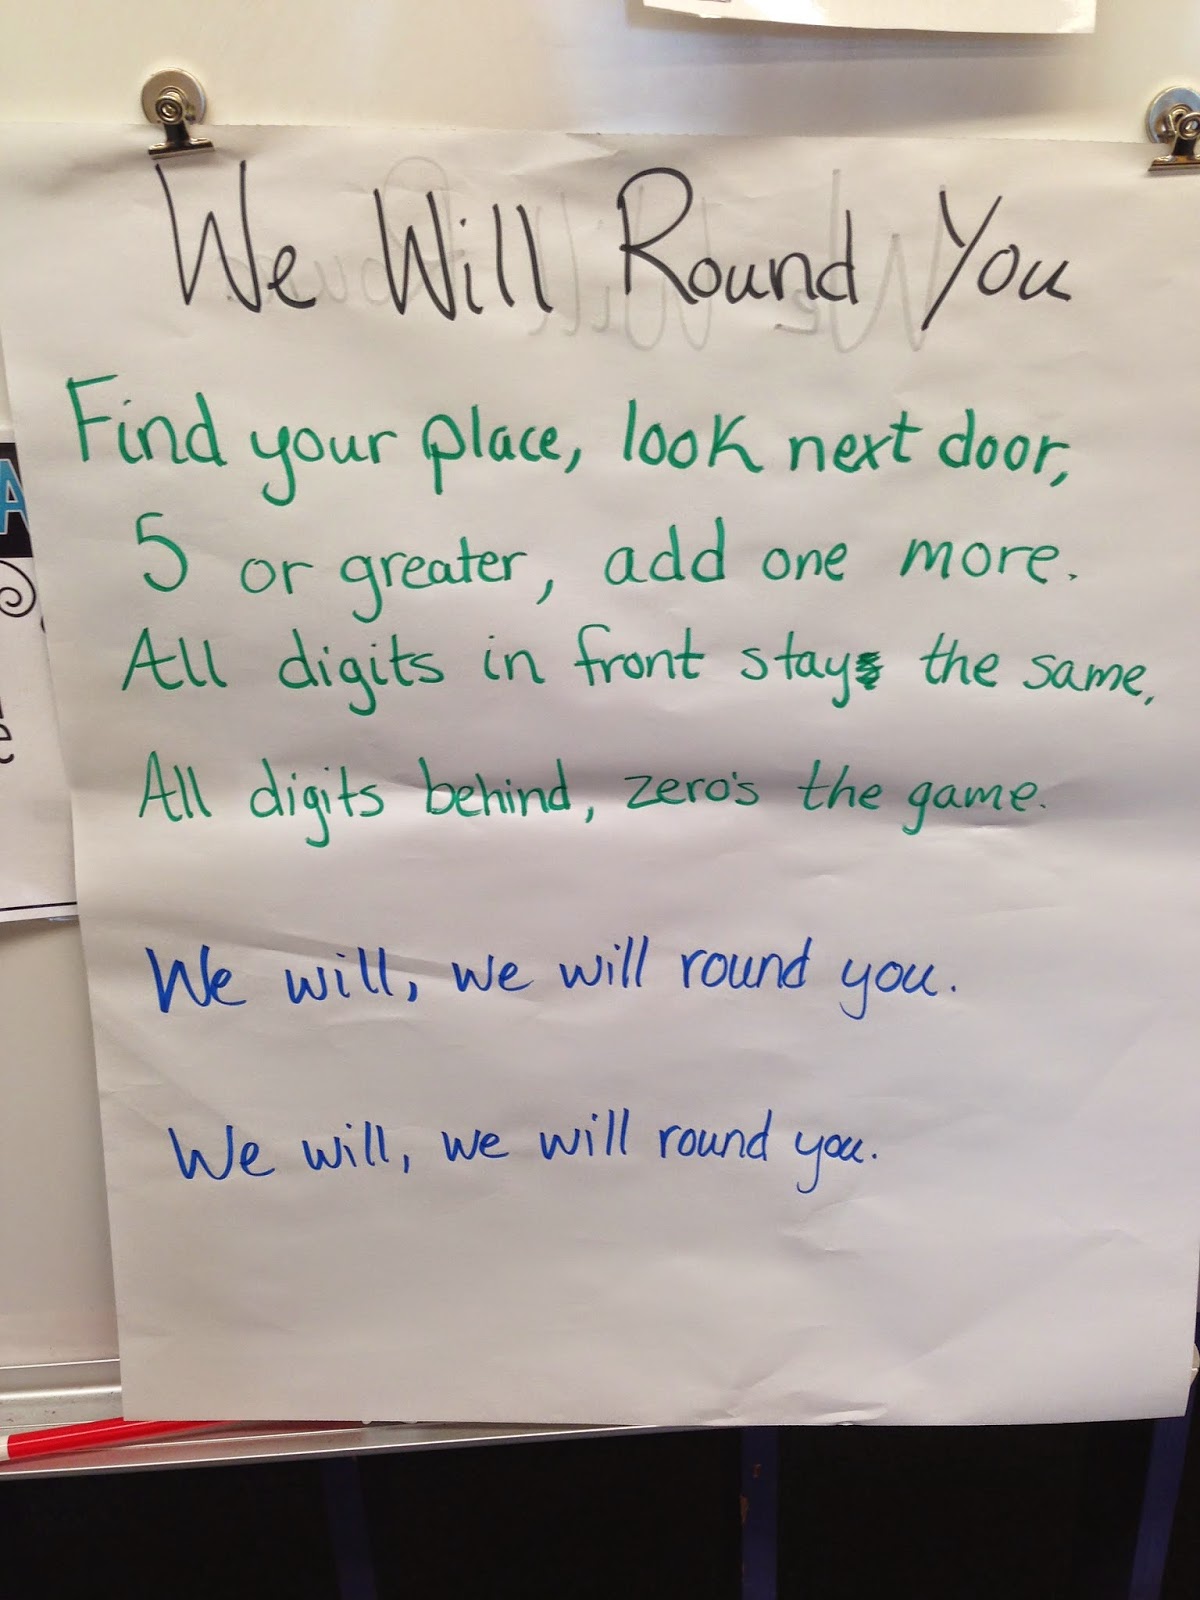 We Will Round You
Find your place, look next door,
5 or greater, add one more.
All digits in front stay the same,
All digits behind, zero's the game.
We will, we will round you.
We will, we will round you.